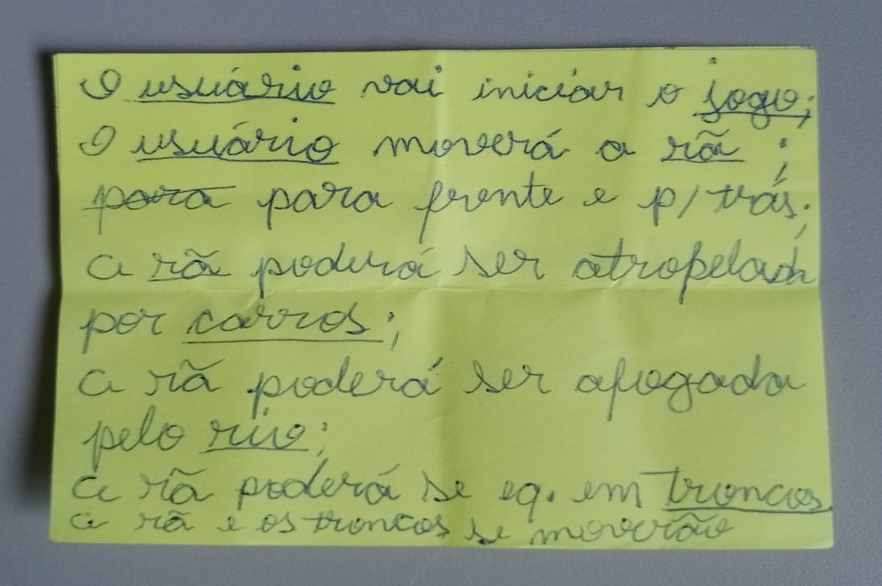 O usuário vai iniciar o jogo;
O usuário moverá a rã ;
para para frente e p/ trás;
a rã poderá ser atropelada
por carros;
a rã poderá ser afogada
pelo rio;
a rã poderá se eq. em troncos
a rã e os troncos se moverão